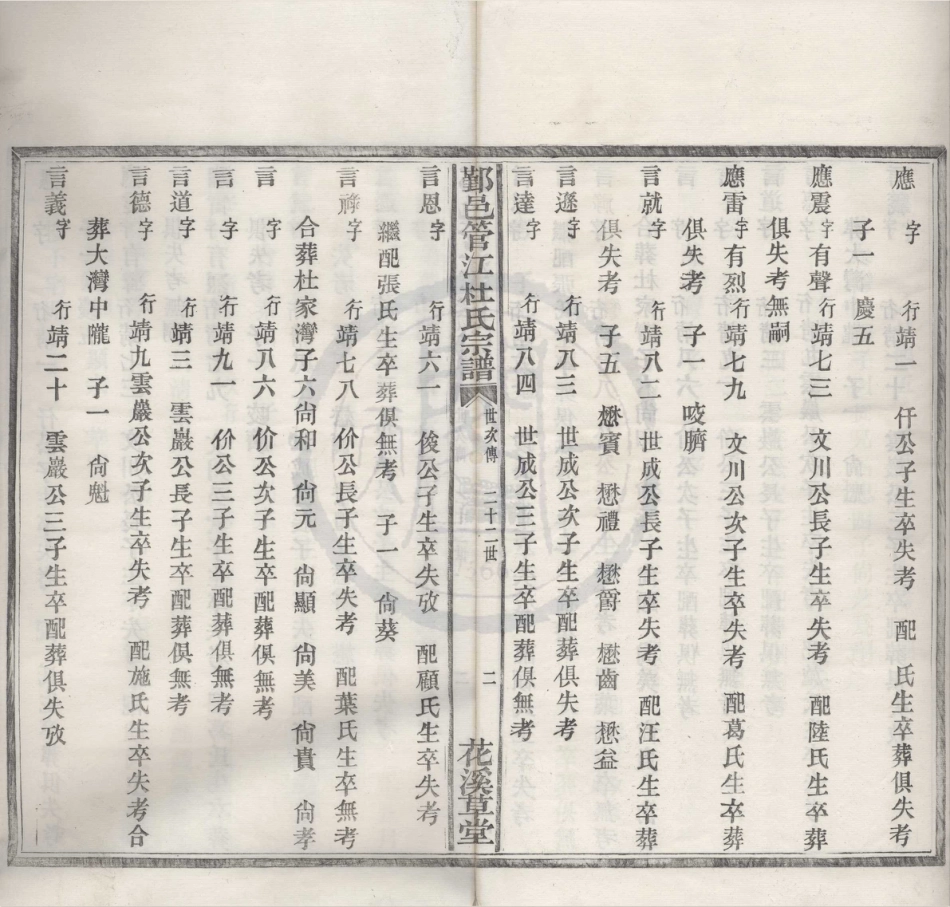 應　字　行靖一　仟公子生卒失考　配　氏生卒葬俱失考
子一　慶五
應震字有聲行靖七三　文川公長子生卒失考　配陸氏生卒葬
俱失考無嗣
應雷字有烈行靖七九　文川公次子生卒失考　配葛氏生卒葬
俱失考　子一　咬臍
言就字　行靖八二　世成公長子生卒失考　配汪氏生卒葬
俱失考　子五　懋賓　懋禮　懋爵　懋齒　懋益
言遜字　行靖八三　世成公次子生卒配葬俱失考
言達字　行靖八四　世成公三子生卒配葬俱無考
鄞邑管江杜氏宗譜　世次傳　二十二世　二　花溪草堂
言恩字　行靖六一　俊公子生卒失攷　配顧氏生卒失考
繼配張氏生卒葬俱無考　子一　尙葵
言祿字　行靖七八　价公長子生卒失考　配葉氏生卒無考
合葬杜家灣子六尙和　尙元　尙顯　尙美　尙貴　尙孝
言　字　行靖八六　价公次子生卒配葬俱無考
言　字　行靖九一　价公三子生卒配葬俱無考
言道字　行靖三　雲巖公長子生卒配葬俱無考
言德字　行靖九雲巖公次子生卒失考　配施氏生卒失考合
葬大灣中隴　子一　尙魁
言義字　行靖二十　雲巖公三子生卒配葬俱失攷